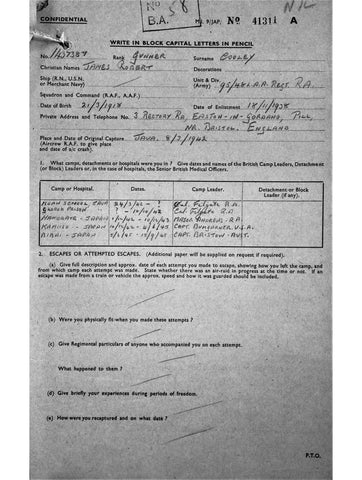 CONFIDENTIAL
58
B.A.
M.I. 9/JAP. Nº 41311 A
NIL
WRITE IN BLOCK CAPITAL LETTERS IN PENCIL
No. 1143738 Rank GUNNER Surname
Christian Names JAMES ROBERT Decorations
Ship (R.N., U.S.N. or Merchant Navy) Unit & Div. (Army) 95/48 L.A.A. REGT. R.A.
Squadron and Command (R.A.F., A.A.F.)
Date of Birth 21/3/1918 Date of Enlistment 18/11/1938
Private Address and Telephone No. 3 RECTORY RD, EASTON-IN-GORDANO, PILL,
NR. BRISTOL. ENGLAND
Place and Date of Original Capture JAVA. 8/3/1942
(Aircrew R.A.F. to give place and date of a/c crash).
1. What camps, detachments or hospitals were you in? Give dates and names of the British Camp Leaders, Detachment
(or Block) Leaders or, in the case of hospitals, the Senior British Medical Officers.
Camp or Hospital. Dates. Camp Leader. Detachment or Block Leader (if any).
SCHOOL, JAVA 24/3/42 - ? COL. R.A.
PRISON ? - 42 COL. R.A.
- JAPAN MAJOR ANDREWS. R.A.
- JAPAN CAPT. U.S.A.
- JAPAN CAPT. BRISTOW - AUST.
2. ESCAPES OR ATTEMPTED ESCAPES. (Additional paper will be supplied on request if required).
(a) Give full description and approx. date of each attempt you made to escape, showing how you left the camp, and
from which camp each attempt was made. State whether there was an air-raid in progress at the time or not. If an
escape was made from a train or vehicle, give the approx. speed and how it was guarded should be included.
(b) Were you physically fit when you made these attempts ?
(c) Give Regimental particulars of anyone who accompanied you on each attempt.
What happened to them ?
(d) Give briefly your experiences during periods of freedom.
(e) How were you recaptured and on what date ?
P.T.O.